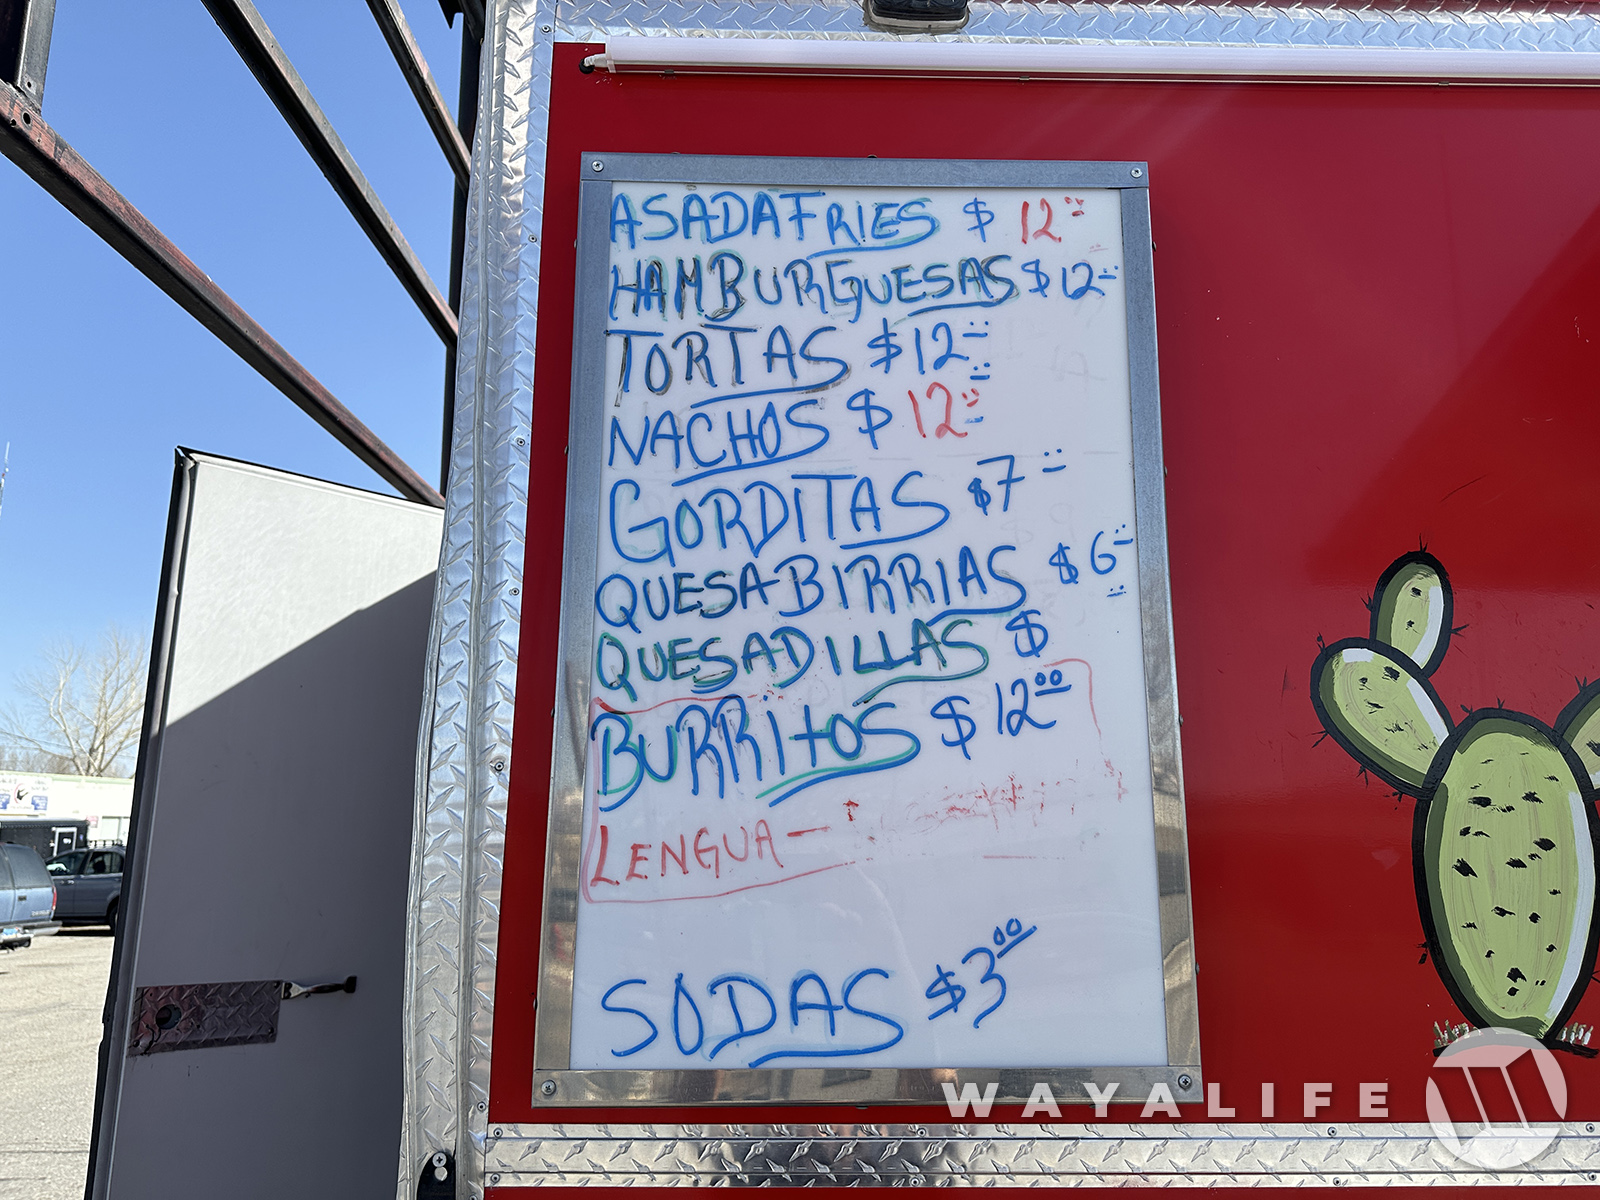 ASADA FRIES $ 12
HAMBURGUESAS $12
TORTAS $12
NACHOS $ 12
GORDITAS $7
QUESABIRRIAS $6
QUESADILLAS $
BURRITOS $12.00
LENGUA —
SODAS $3.00
WAYALIFE